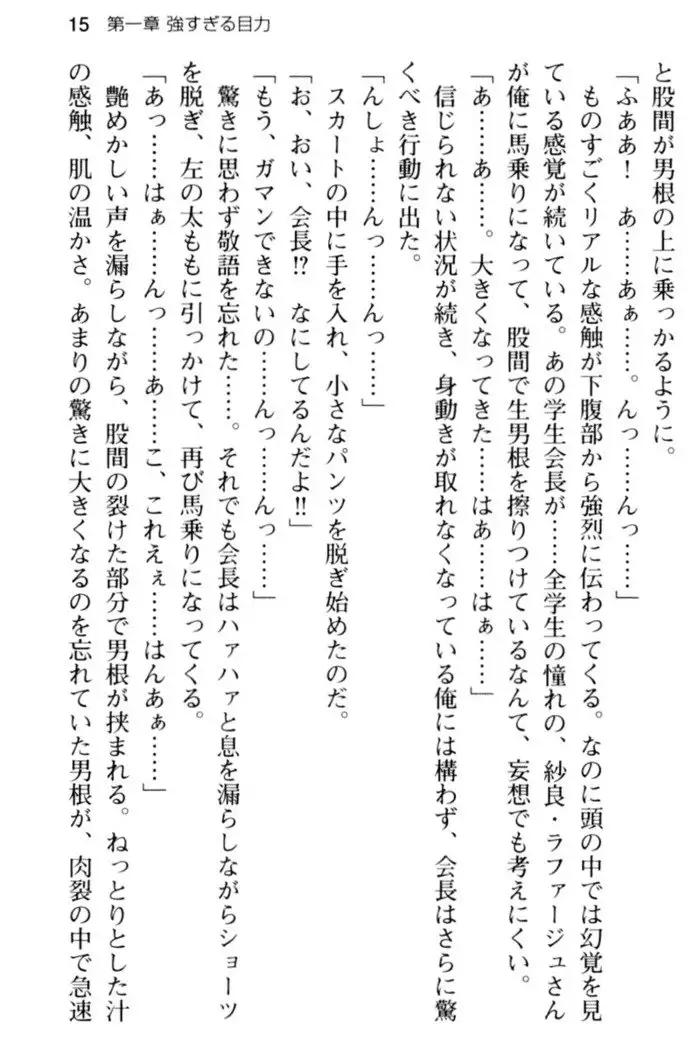 15 第一章 強すぎる目力
と股間が男根の上に乗っかるように。
「ふああ！　あ……あぁ……。んっ……んっ……」
ものすごくリアルな感触が下腹部から強烈に伝わってくる。なのに頭の中では幻覚を見
ている感覚が続いている。あの学生会長が……全学生の憧れの、紗良・ラファージュさん
が俺に馬乗りになって、股間で生男根を擦りつけているなんて、妄想でも考えにくい。
「あ……あ……。大きくなってきた……はあ……はぁ……」
信じられない状況が続き、身動きが取れなくなっている俺には構わず、会長はさらに驚
くべき行動に出た。
「んしょ……んっ……んっ……」
スカートの中に手を入れ、小さなパンツを脱ぎ始めたのだ。
「お、おい、会長⁉　なにしてるんだよ‼」
「もう、ガマンできないの……んっ……んっ……」
驚きに思わず敬語を忘れた……。それでも会長はハァハァと息を漏らしながらショーツ
を脱ぎ、左の太ももに引っかけて、再び馬乗りになってくる。
「あっ……はぁ……んっ……あ……こ、これえぇ……はんあぁ……」
艶めかしい声を漏らしながら、股間の裂けた部分で男根が挟まれる。ねっとりとした汁
の感触、肌の温かさ。あまりの驚きに大きくなるのを忘れていた男根が、肉裂の中で急速